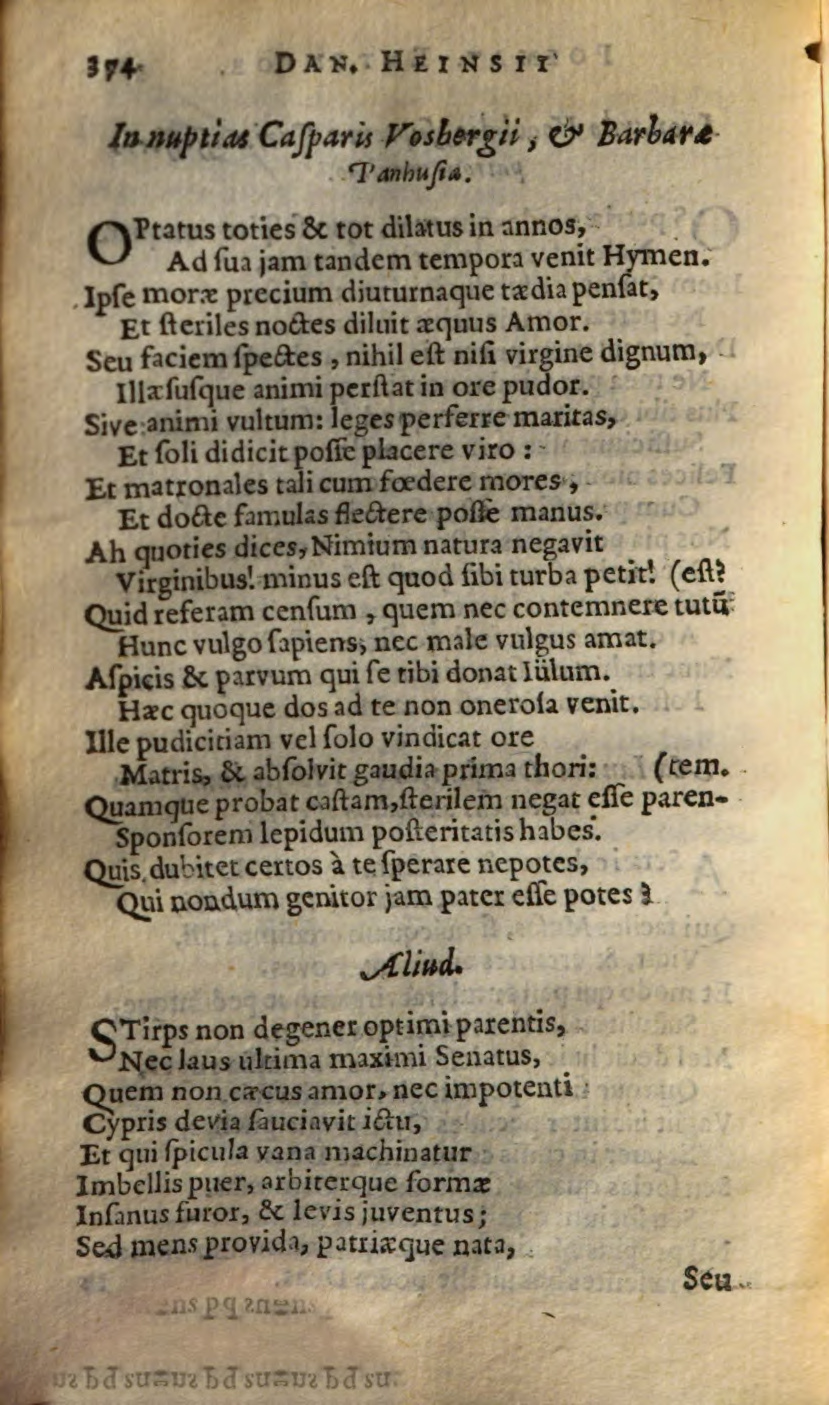 374 DAN. HEINSII
In nuptias Caſparis Vosbergii, & Barbaræ
Vanhuſiæ.
OPtatus toties & tot dilatus in annos,
Ad ſua jam tandem tempora venit Hymen.
Ipſe moræ precium diuturnaque tædia penſat,
Et ſteriles noctes diluit æquus Amor.
Seu faciem ſpectes, nihil eſt niſi virgine dignum,
Illæſuſque animi perſtat in ore pudor.
Sive animi vultum: leges perferre maritas,
Et ſoli didicit poſſe placere viro:
Et matronales tali cum fœdere mores,
Et docte famulas flectere poſſe manus.
Ah quoties dices, Nimium natura negavit
Virginibus! minus eſt quod ſibi turba petit! (eſt?
Quid referam cenſum, quem nec contemnere tutũ
Hunc vulgo ſapiens, nec male vulgus amat.
Aſpicis & parvum qui ſe tibi donat Iülum.
Hæc quoque dos ad te non oneroſa venit.
Ille pudicitiam vel ſolo vindicat ore
Matris, & abſolvit gaudia prima thori: (tem.
Quamque probat caſtam, ſterilem negat eſſe paren-
Sponſorem lepidum poſteritatis habes.
Quis dubitet certos à te ſperare nepotes,
Qui nondum genitor jam pater eſſe potes?
Aliud.
STirps non degener optimi parentis,
Nec laus ultima maximi Senatus,
Quem non cæcus amor, nec impotenti
Cypris devia ſauciavit ictu,
Et qui ſpicula vana machinatur
Imbellis puer, arbiterque formæ
Inſanus furor, & levis juventus;
Sed mens provida, patriæque nata,
Seu